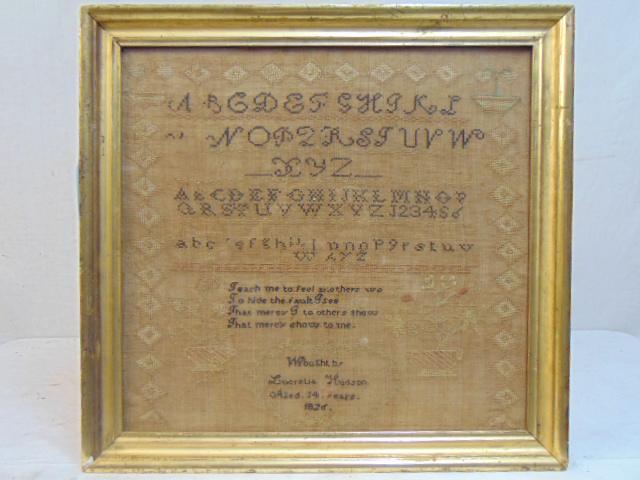 A B C D E F G H I K L
N O P Q R S T U V W
X Y Z
A B C D E F G H I J K L M N O P
Q R S T U V W X Y Z 1 2 3 4 5 6
a b c e f g h i j n o p q r s t u v
W X Y Z
Teach me to feel anothers wo
To hide the fault I see
That mercy I to others show
That mercy show to me.
Wrought by
Lucretia Hudson
Aged 14 years.